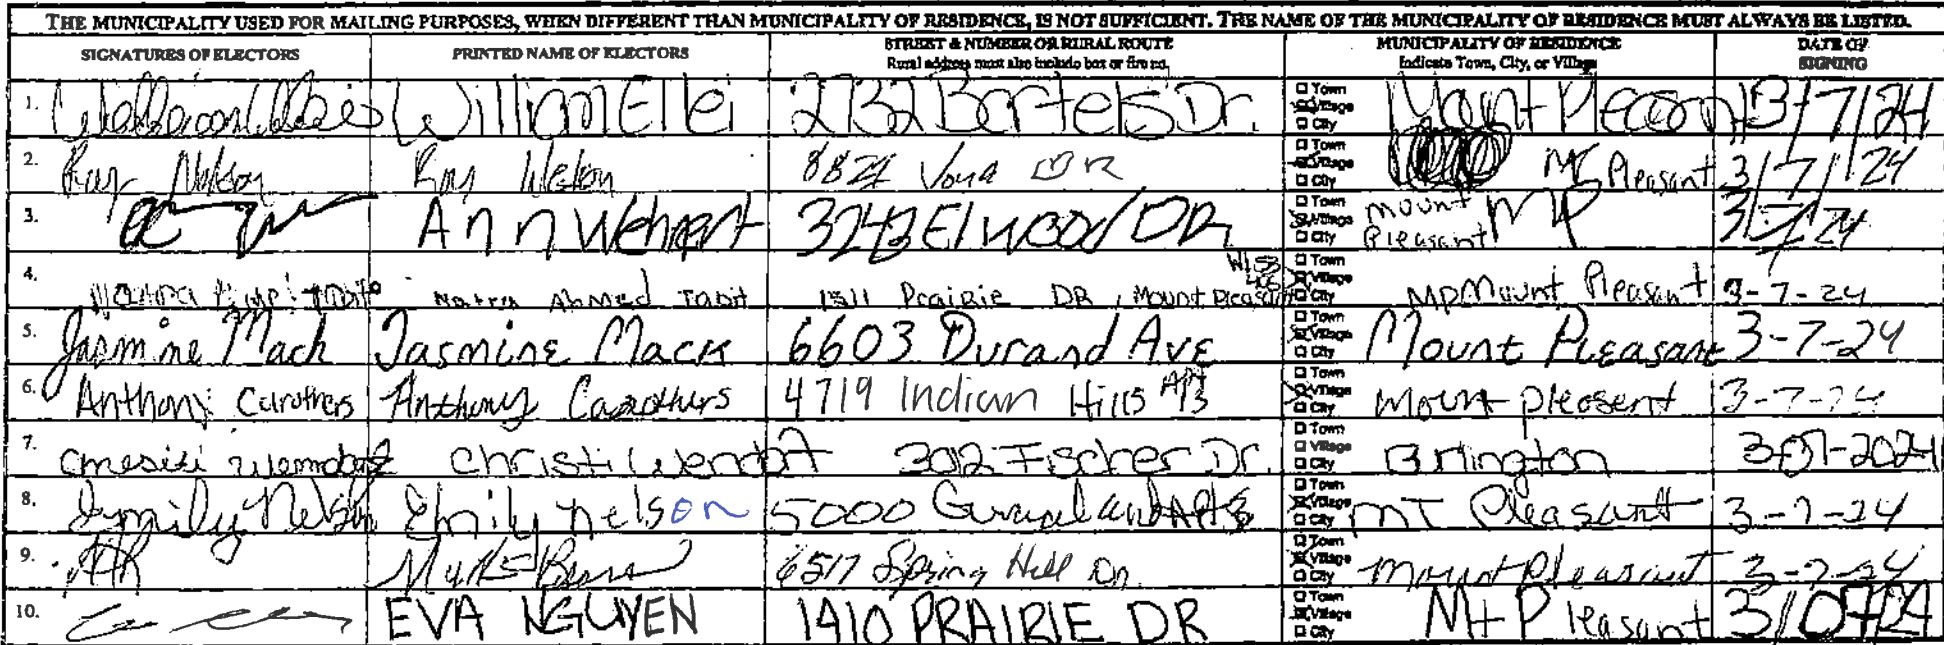 THE MUNICIPALITY USED FOR MAILING PURPOSES, WHEN DIFFERENT THAN MUNICIPALITY OF RESIDENCE, IS NOT SUFFICIENT. THE NAME OF THE MUNICIPALITY OF RESIDENCE MUST ALWAYS BE LISTED.
SIGNATURES OF ELECTORS PRINTED NAME OF ELECTORS STREET & NUMBER OR RURAL ROUTE MUNICIPALITY OF RESIDENCE DATE OF
Rural address must also include box or fire no. Indicate Town, City, or Village SIGNING
1. William 2732 Bartels Dr. Town Village City Mount Pleasant 3/7/24
2. Ray Nelson Ray DR Town Village City Mt Pleasant 3/7/24
3. Ann Wehnert 3243 Elwood DR Town Village City Mount Pleasant MP 3/7/24
4. Ahmed Tabit 1511 Prairie DR, Mount Pleasant WI 53406 Town Village City MP Mount Pleasant 3-7-24
5. Jasmine Mack Jasmine Mack 6603 Durand Ave Town Village City Mount Pleasant 3-7-24
6. Anthony Carothers Anthony Carothers 4719 Indian Hills Apt 3 Town Village City Mount pleosent 3-7-24
7. Christi Wendt 302 Fischer Dr. Town Village City Burlington 3-07-2024
8. Emily Nelson Emily nelson 5000 Town Village City MT Pleasant 3-7-24
9. 6517 Spring Hill Dr Town Village City Mount Pleasant 3-7-24
10. EVA NGUYEN 1410 PRAIRIE DR Town Village City Mt Pleasant 3/07/24